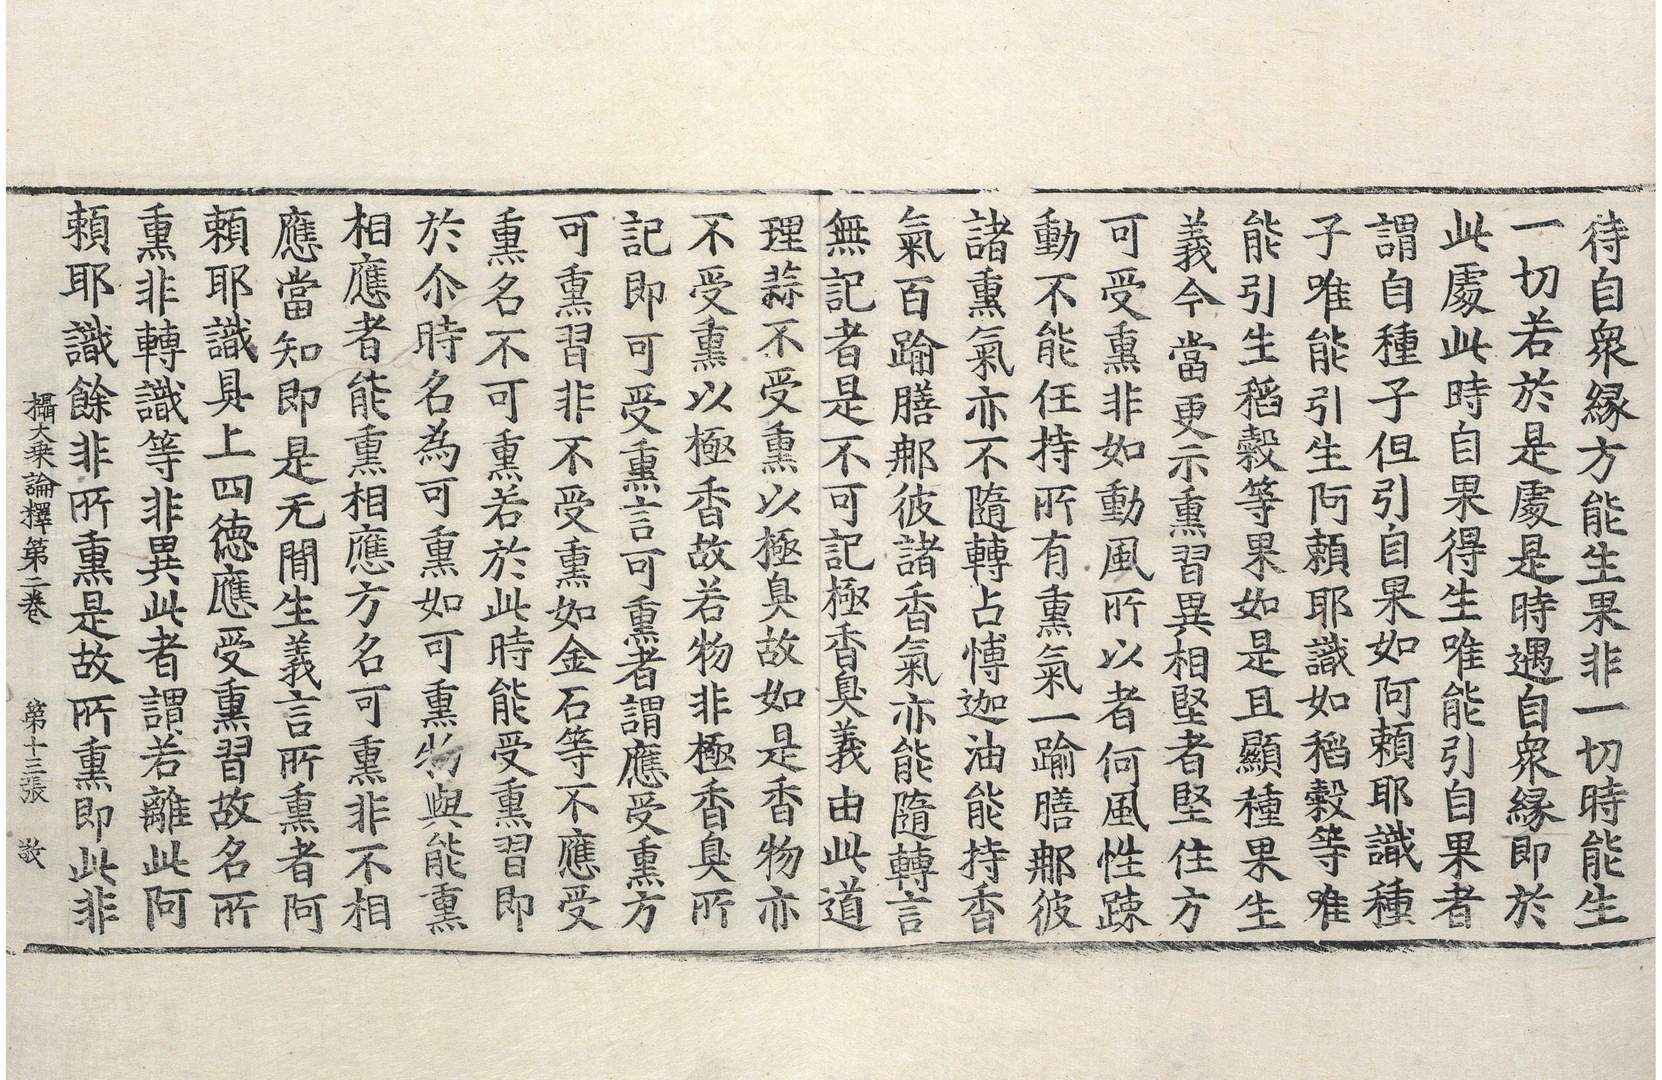 待自衆緣方能生果非一切時能生
一切若於是處是時遇自衆緣即於
此處此時自果得生唯能引自果者
謂自種子但引自果如阿賴耶識種
子唯能引生阿賴耶識如稻穀等唯
能引生稻穀等果如是且顯種果生
義今當更示熏習異相堅者堅住方
可受熏非如動風所以者何風性踈
動不能任持所有熏氣一踰膳那彼
諸熏氣亦不隨轉占愽迦油能持香
氣百踰膳那彼諸香氣亦能隨轉言
無記者是不可記極香臭義由此道
理蒜不受熏以極臭故如是香物亦
不受熏以極香故若物非極香臭所
記即可受熏言可熏者謂應受熏方
可熏習非不受熏如金石等不應受
熏名不可熏若於此時能受熏習即
於尒時名為可熏如可熏物與能熏
相應者能熏相應方名可熏非不相
應當知即是无間生義言所熏者阿
賴耶識具上四徳應受熏習故名所
熏非轉識等非異此者謂若離此阿
賴耶識餘非所熏是故所熏即此非
攝大乗論釋第二卷 第十三張 敬